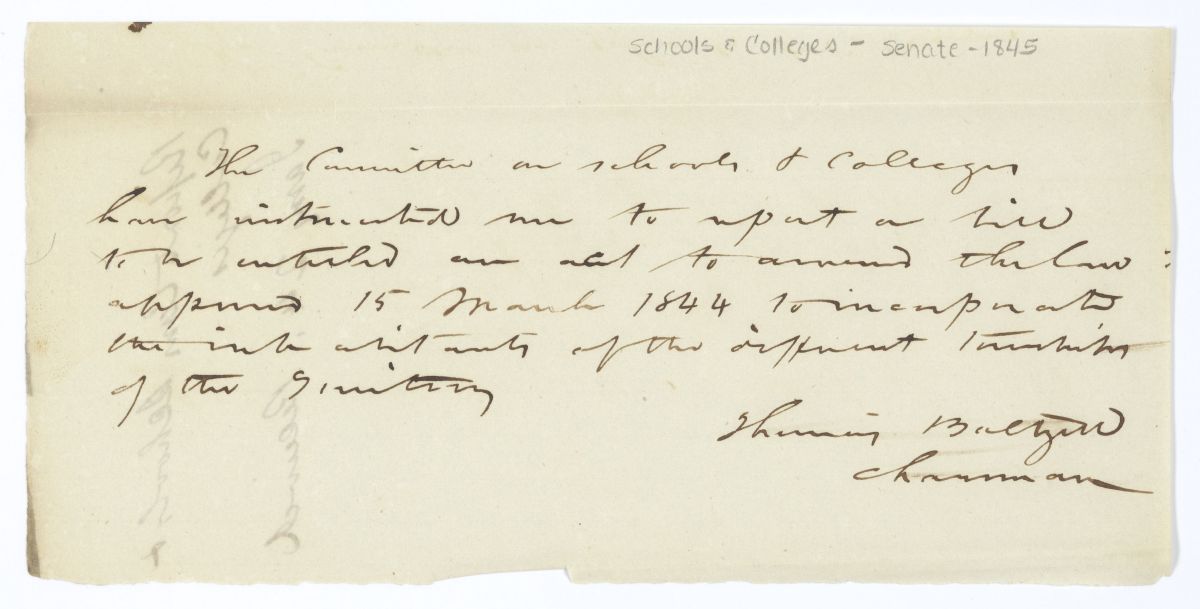 Schools & Colleges - Senate - 1845
The Committee on schools & Colleges
have instructed me to report a bill
to be entitled an act to amend the law
approved 15 March 1844 to incorporate
the inhabitants of the different Townships
of the Territory
Thomas Baltzell
Chairman